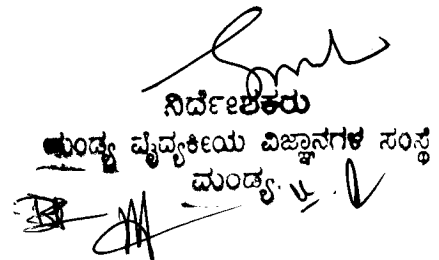 ನಿರ್ದೇಶಕರು
ಮಂಡ್ಯ ವೈದ್ಯಕೀಯ ವಿಜ್ಞಾನಗಳ ಸಂಸ್ಥೆ
ಮಂಡ್ಯ.